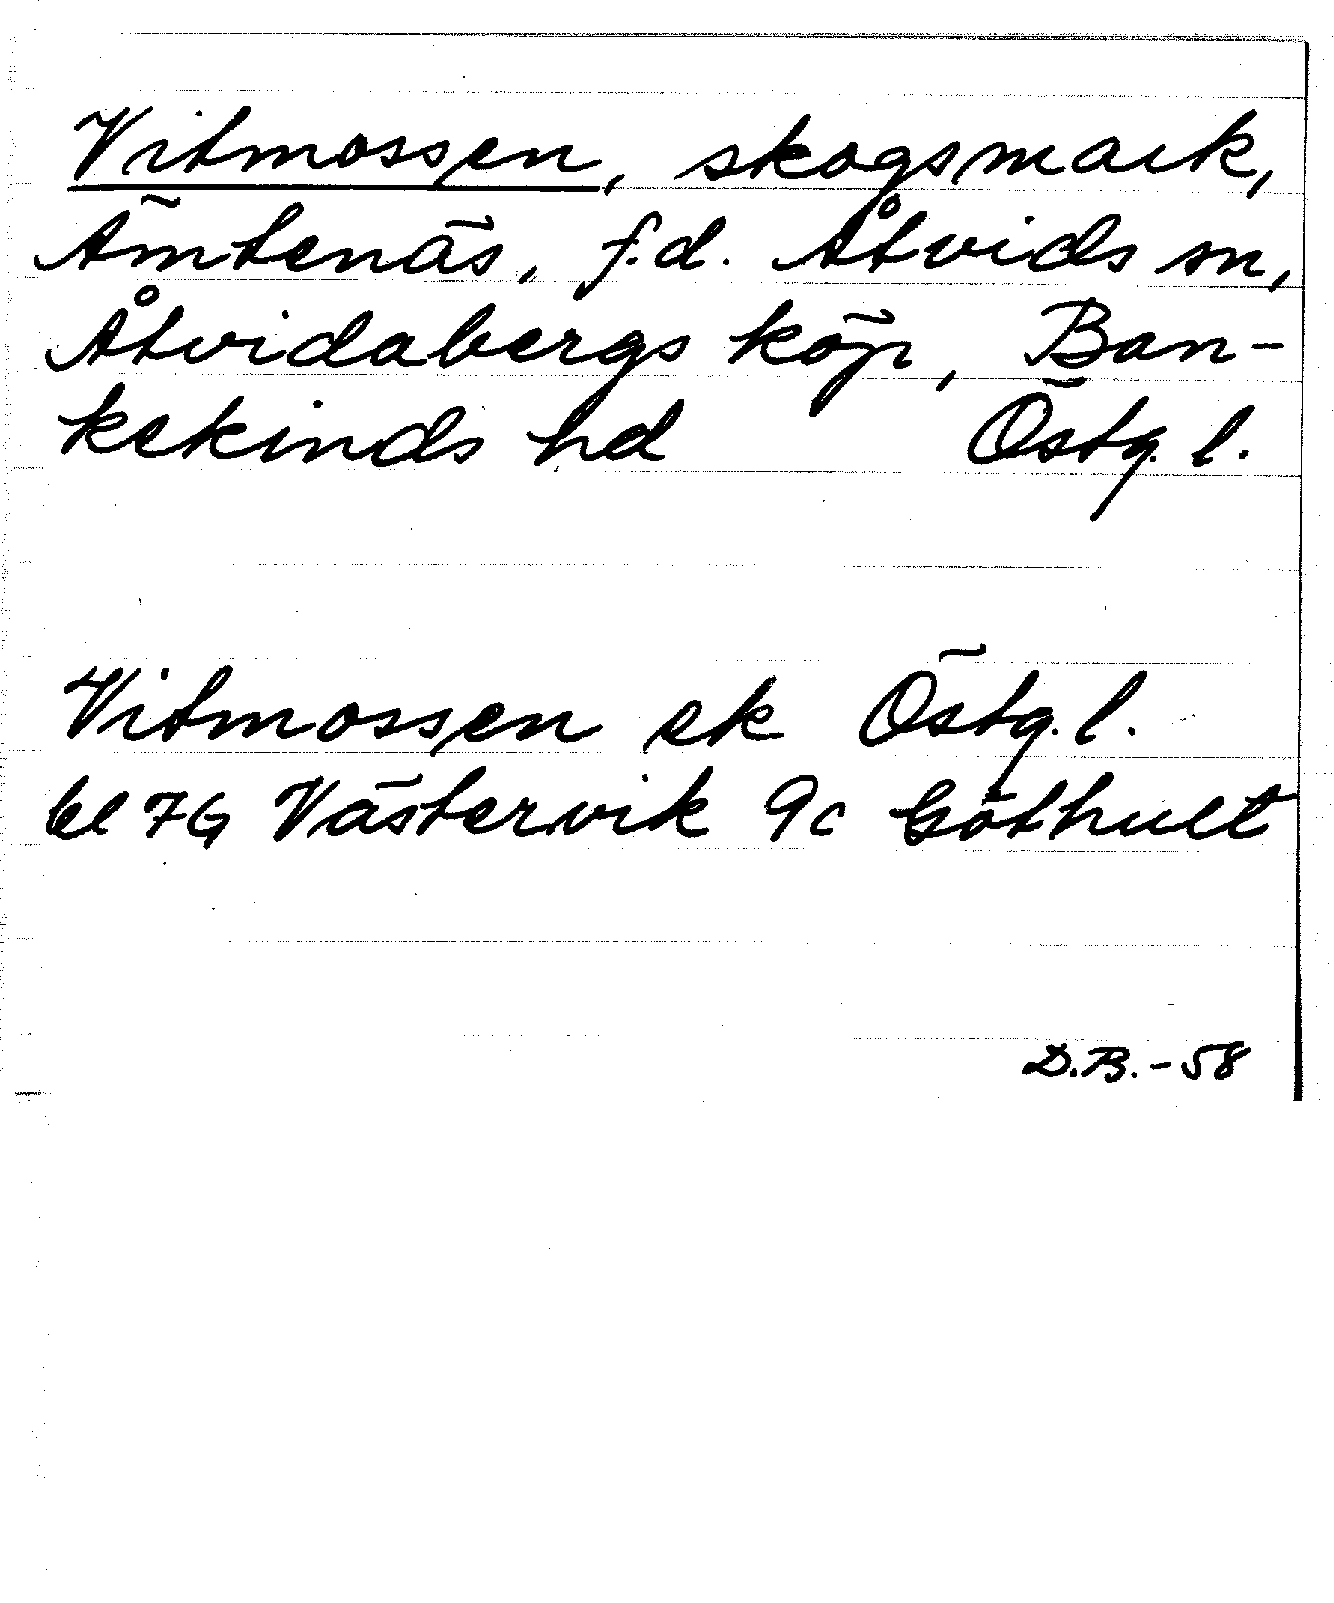 Vitmossen, skogsmark,
Ämtenäs, f.d. Åtvids sn,
Åtvidabergs köp, Ban-
kekinds hd Östg. l.
Vitmossen ek Östg. l.
bl 7G Västervik 9c Göthult
D.B. -58